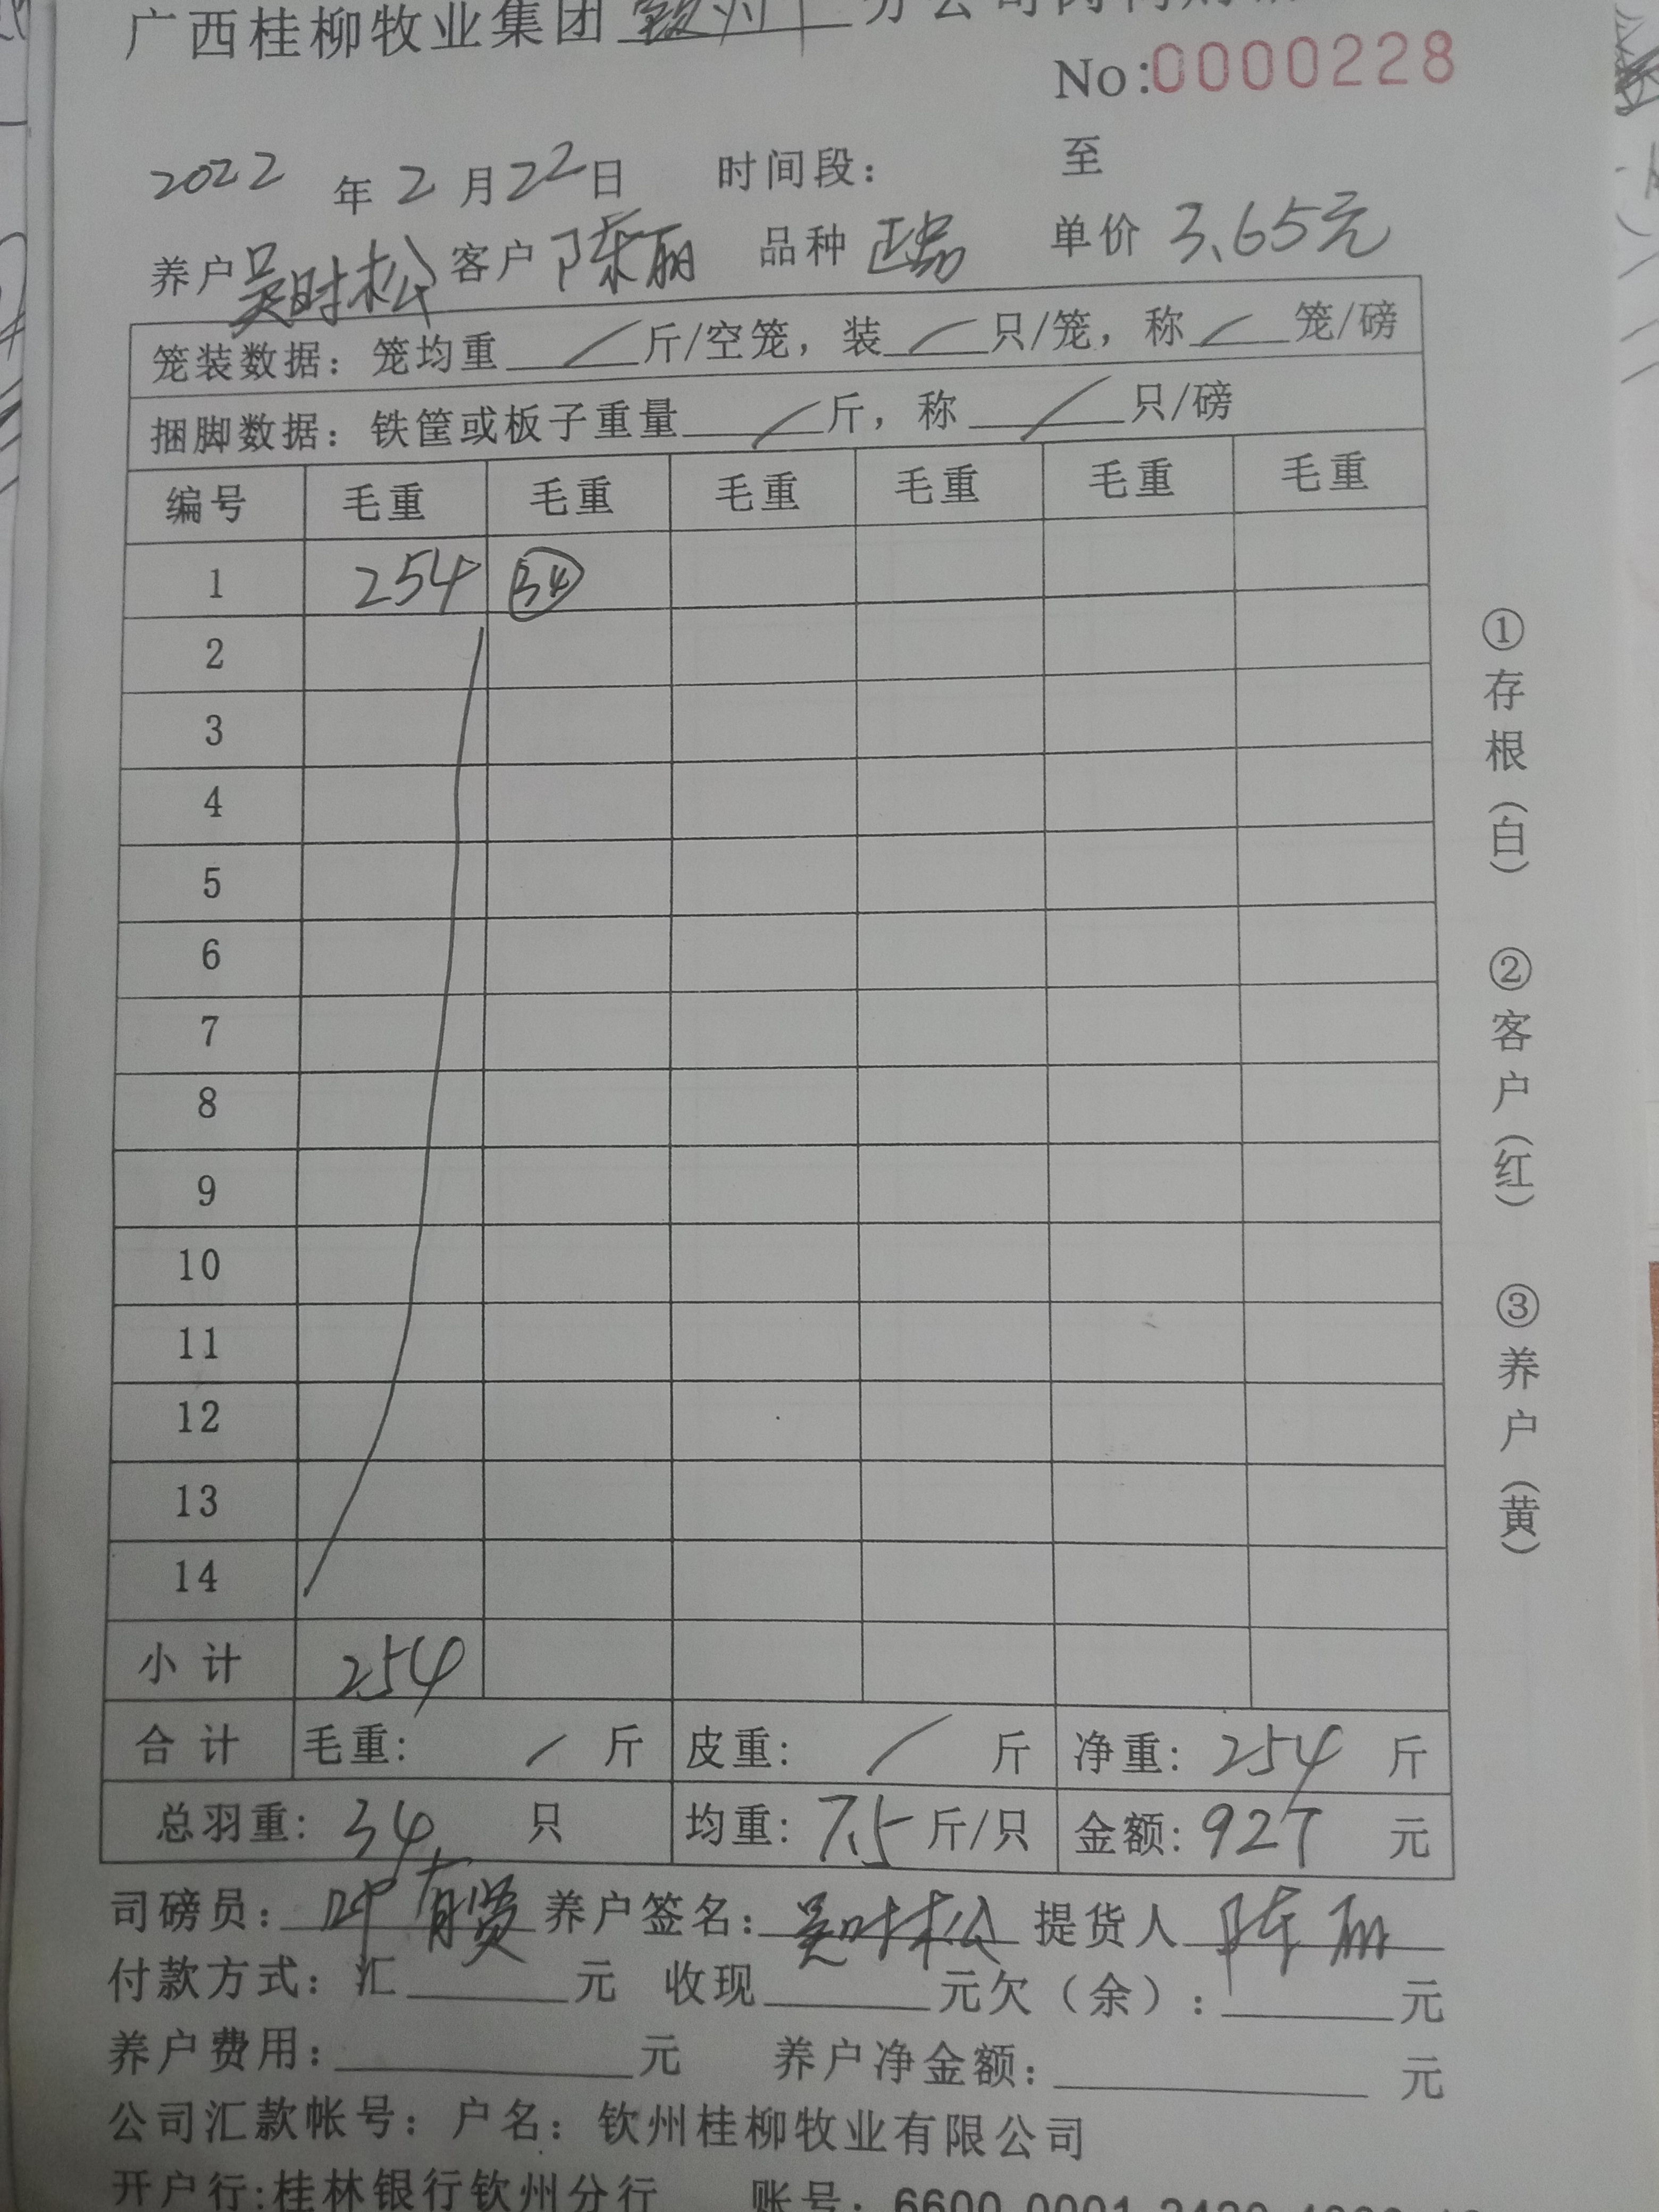 广西桂柳牧业集团 钦州 分公司
No:0000228
2022 年 2 月 22 日 时间段: 至
养户 吴时松 客户 陈丽 品种 单价 3.65元
笼装数据: 笼均重 / 斤/空笼, 装 / 只/笼, 称 / 笼/磅
捆脚数据: 铁筐或板子重量 / 斤, 称 / 只/磅
编号 毛重 毛重 毛重 毛重 毛重 毛重
1 254 34
2
3
4
5
6
7
8
9
10
11
12
13
14
小计 254
合计 毛重: / 斤 皮重: / 斤 净重: 254 斤
总羽重: 34 只 均重: 7.5 斤/只 金额: 927 元
司磅员: 叶有贤 养户签名: 吴时松 提货人 陈丽
付款方式: 汇 元 收现 元欠(余): 元
养户费用: 元 养户净金额: 元
公司汇款帐号: 户名: 钦州桂柳牧业有限公司
开户行:桂林银行钦州分行 账号: 6600 0001
①存根(白) ②客户(红) ③养户(黄)